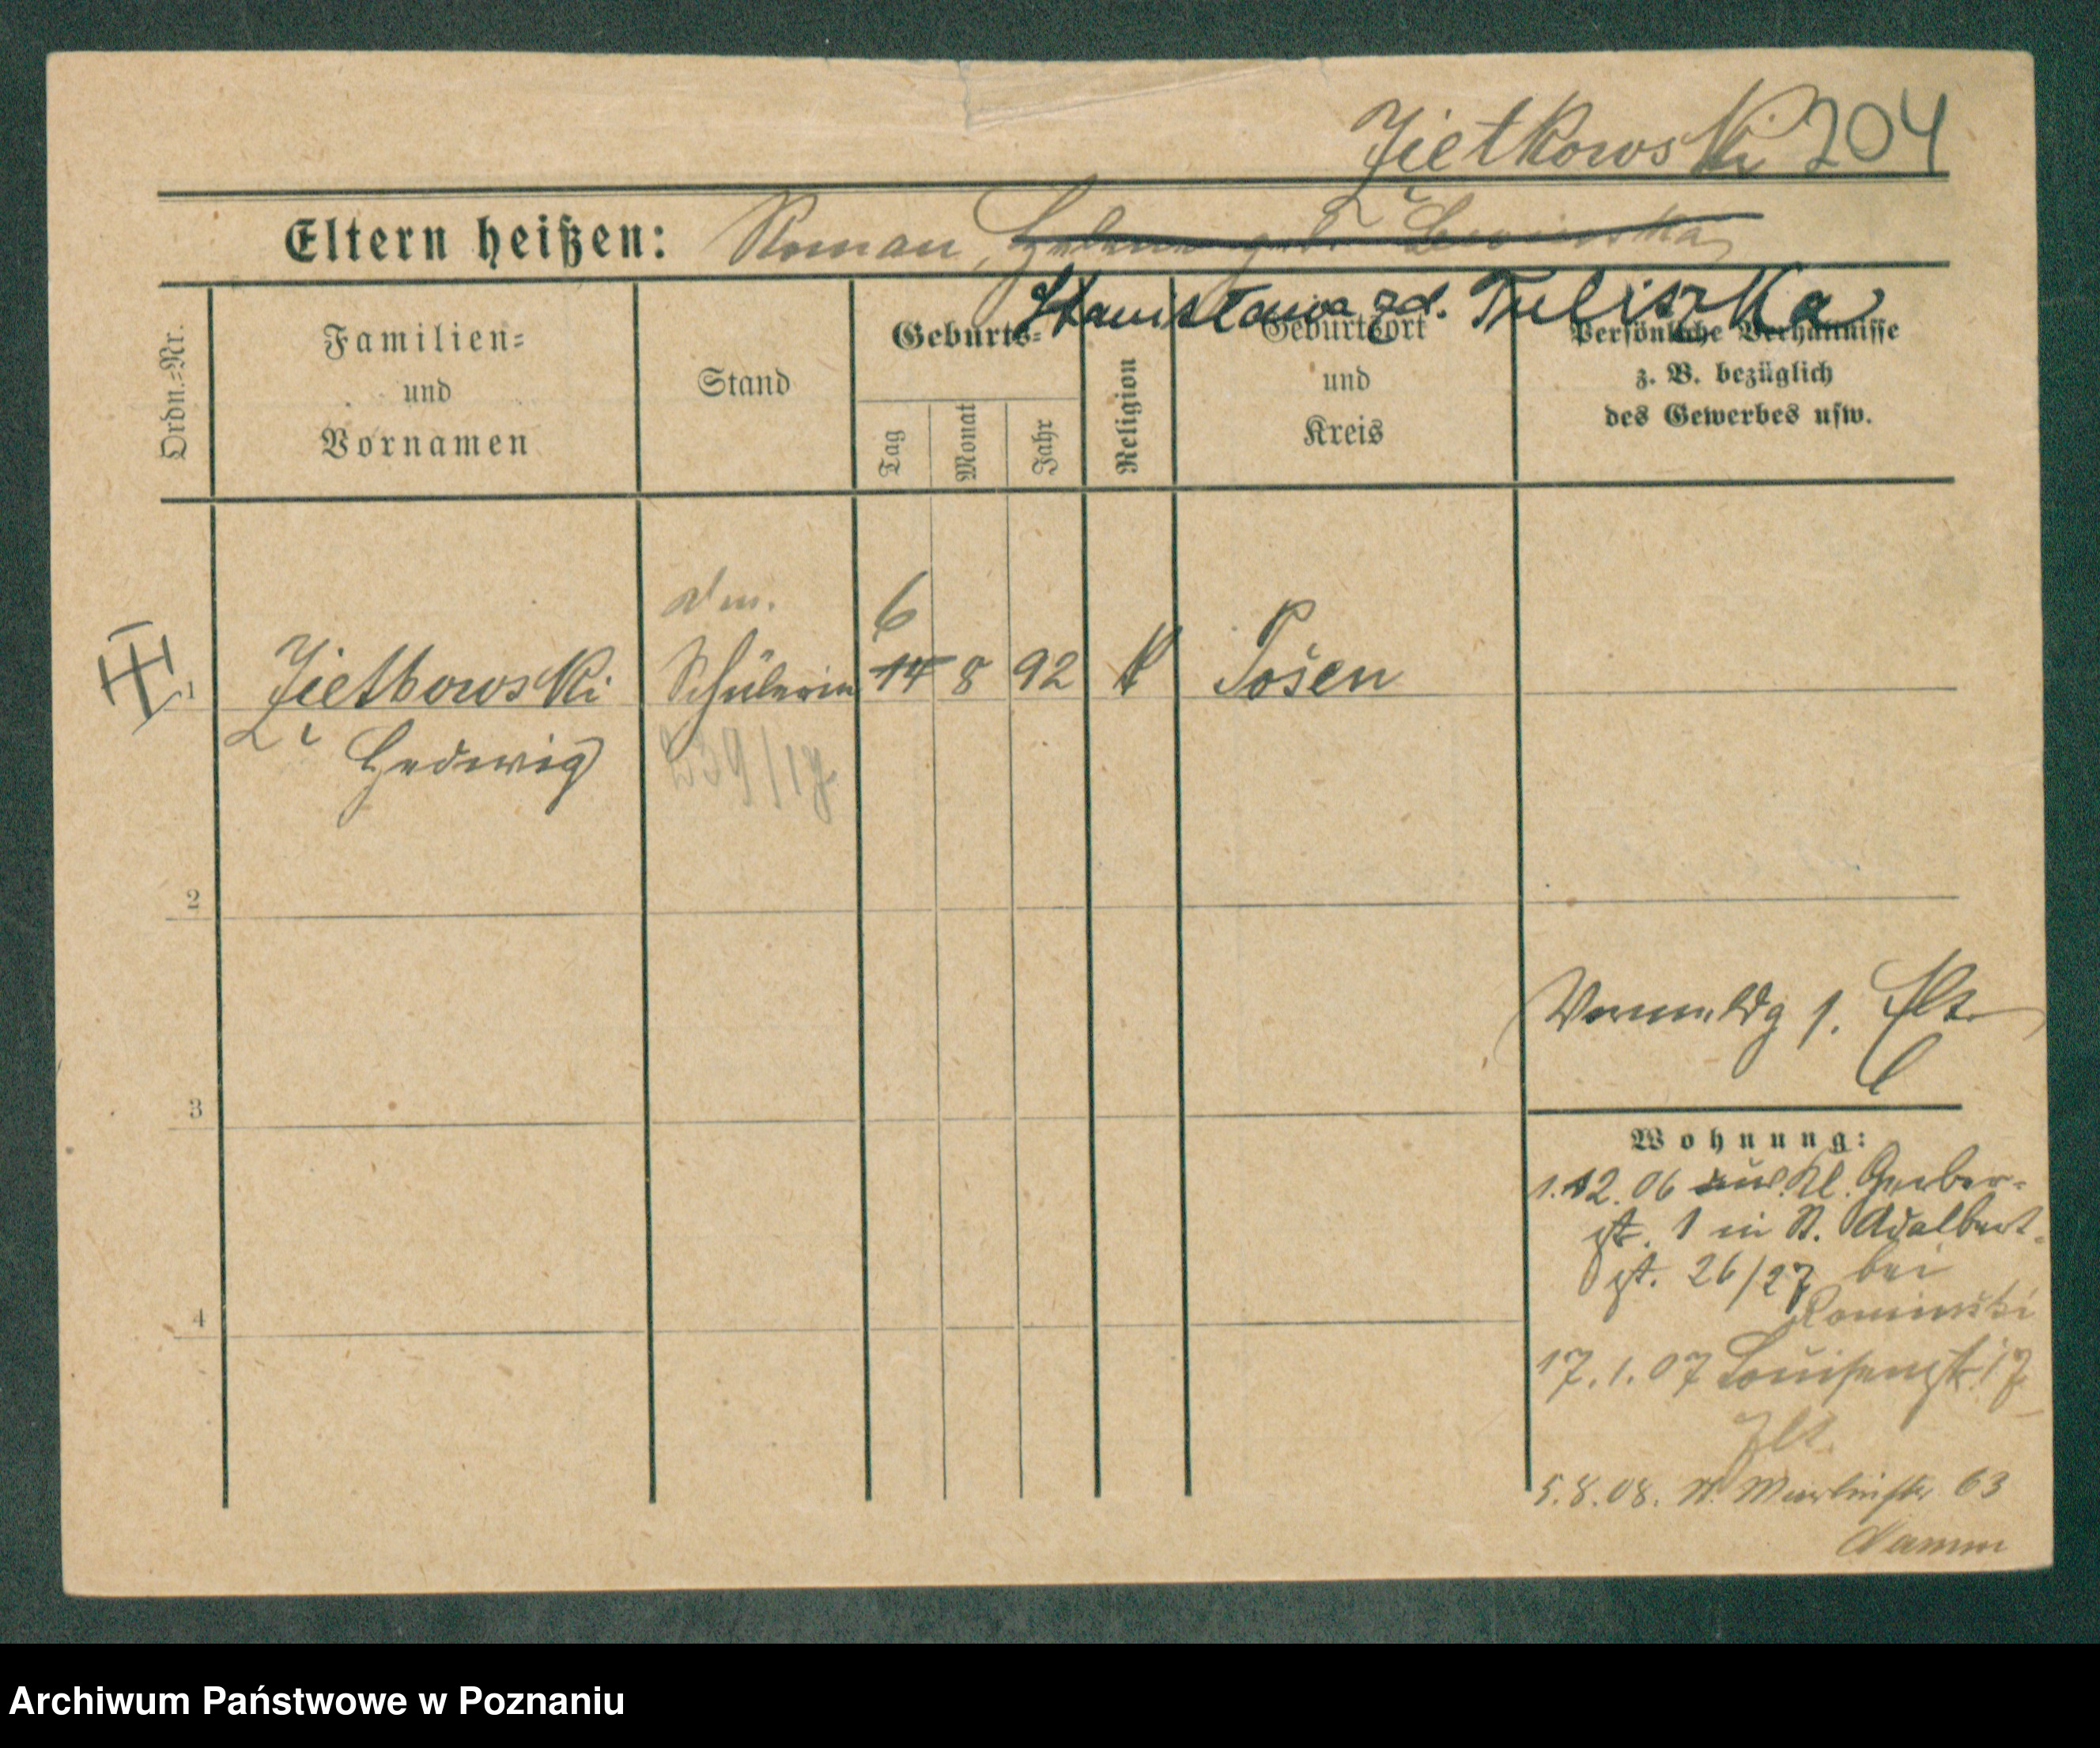 Zietkowski 204
Eltern heißen: Roman, Helene geb. Lewinska
Stanisława zd. Tuliszka
Ordn.=Nr.
Familien=
und
Vornamen
Stand
Geburts=
Tag
Monat
Jahr
Religion
Geburtsort
und
Kreis
Persönliche Verhältnisse
z. B. bezüglich
des Gewerbes usw.
6
1 Zietkowski Schülerin 14 8 92 k Posen
Hedwig
2
3
4
Wohnung:
1.12.06 aus Kl. Gerber-
str. 1 in St. Adalbert-
str. 26/27 bei
Kaminski
17.1.07 Louisenstr. 17
5.8.08. 63
Archiwum Państwowe w Poznaniu